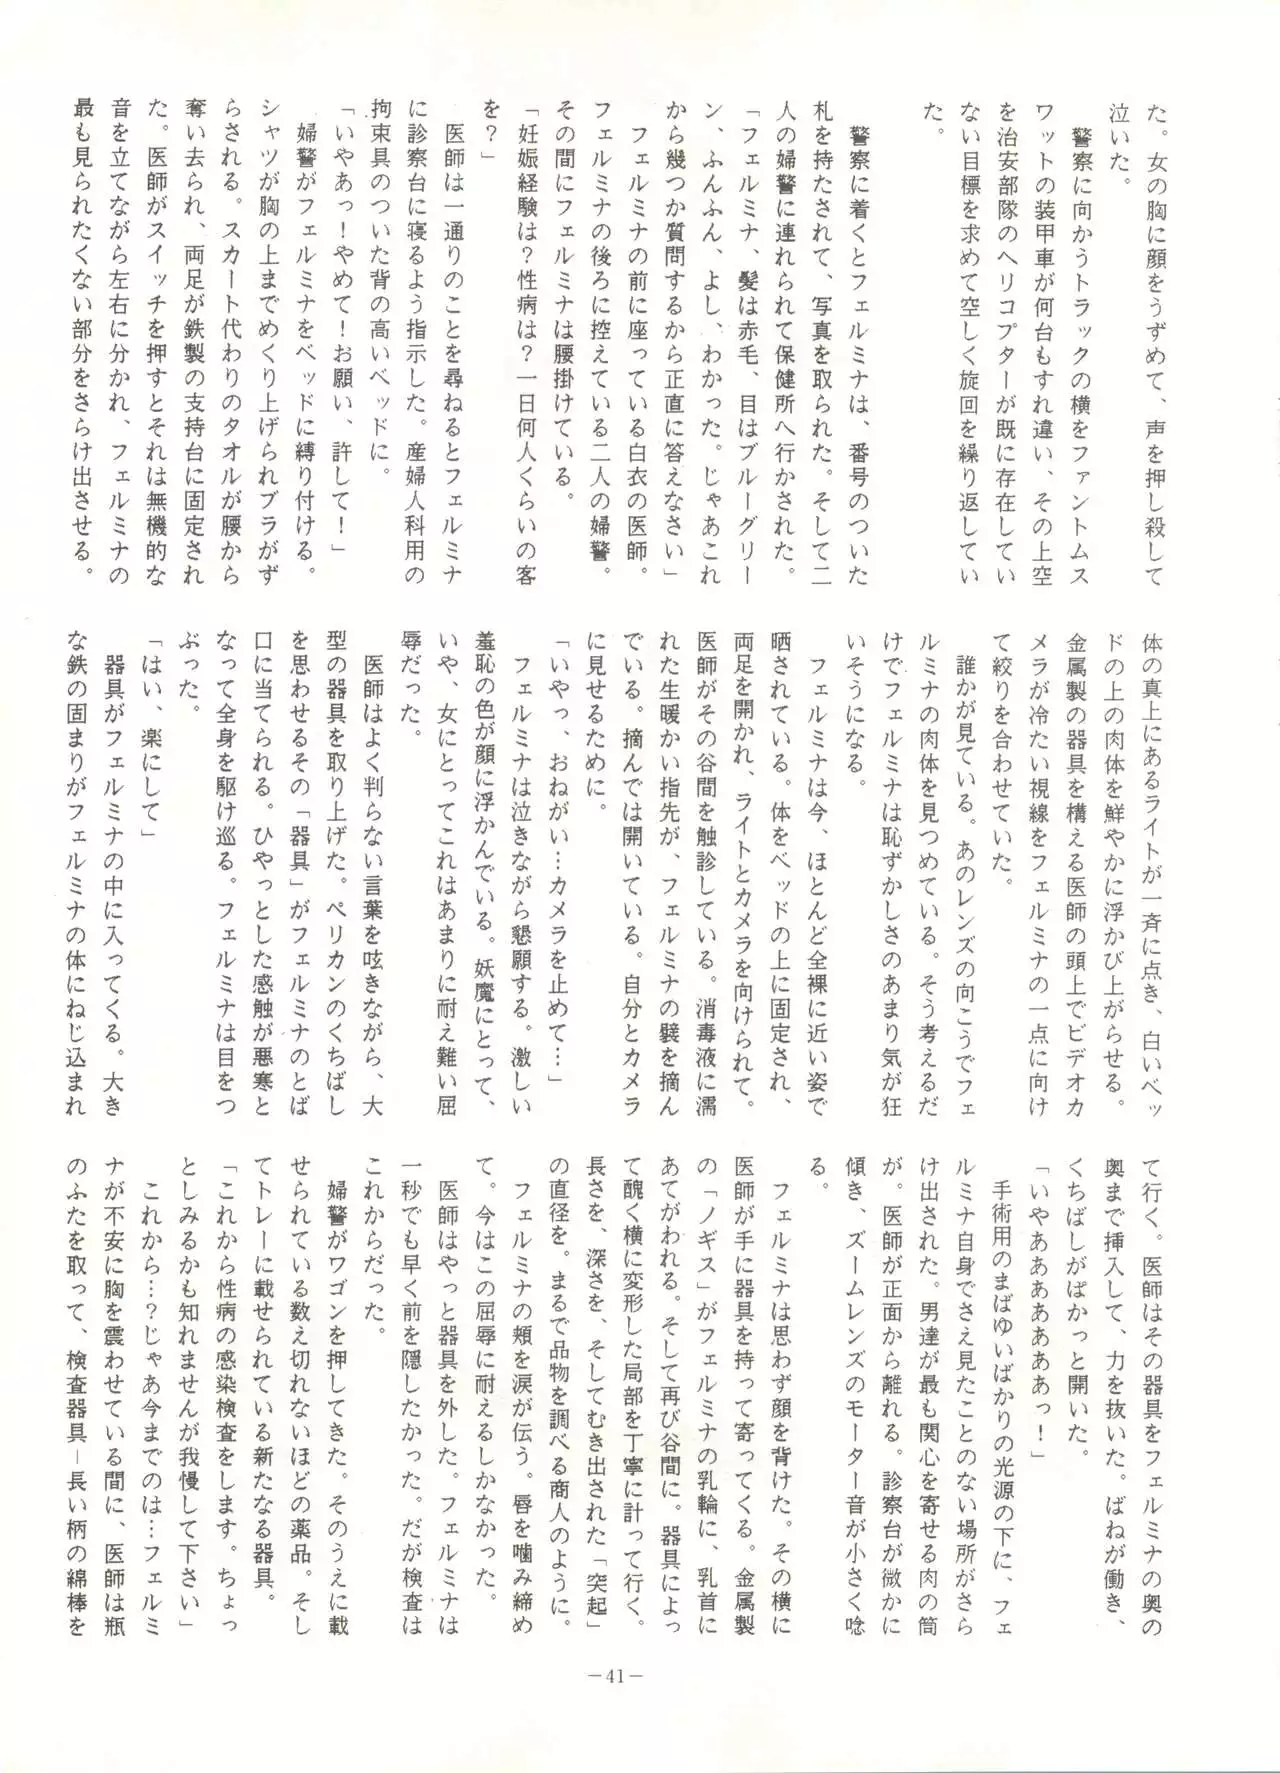 た。女の胸に顔をうずめて、声を押し殺して
泣いた。
警察に向かうトラックの横をファントムス
ワットの装甲車が何台もすれ違い、その上空
を治安部隊のヘリコプターが既に存在してい
ない目標を求めて空しく旋回を繰り返してい
た。
警察に着くとフェルミナは、番号のついた
札を持たされて、写真を取られた。そして二
人の婦警に連れられて保健所へ行かされた。
「フェルミナ、髪は赤毛、目はブルーグリー
ン、ふんふん、よし、わかった。じゃあこれ
から幾つか質問するから正直に答えなさい」
フェルミナの前に座っている白衣の医師。
フェルミナの後ろに控えている二人の婦警。
その間にフェルミナは腰掛けている。
「妊娠経験は?性病は?一日何人くらいの客
を?」
医師は一通りのことを尋ねるとフェルミナ
に診察台に寝るよう指示した。産婦人科用の
拘束具のついた背の高いベッドに。
「いやあっ!やめて!お願い、許して!」
婦警がフェルミナをベッドに縛り付ける。
シャツが胸の上までめくり上げられブラがず
らされる。スカート代わりのタオルが腰から
奪い去られ、両足が鉄製の支持台に固定され
た。医師がスイッチを押すとそれは無機的な
音を立てながら左右に分かれ、フェルミナの
最も見られたくない部分をさらけ出させる。
体の真上にあるライトが一斉に点き、白いベッ
ドの上の肉体を鮮やかに浮かび上がらせる。
金属製の器具を構える医師の頭上でビデオカ
メラが冷たい視線をフェルミナの一点に向け
て絞りを合わせていた。
誰かが見ている。あのレンズの向こうでフェ
ルミナの肉体を見つめている。そう考えるだ
けでフェルミナは恥ずかしさのあまり気が狂
いそうになる。
フェルミナは今、ほとんど全裸に近い姿で
晒されている。体をベッドの上に固定され、
両足を開かれ、ライトとカメラを向けられて。
医師がその谷間を触診している。消毒液に濡
れた生暖かい指先が、フェルミナの襞を摘ん
でいる。摘んでは開いている。自分とカメラ
に見せるために。
「いやっ、おねがい…カメラを止めて…」
フェルミナは泣きながら懇願する。激しい
羞恥の色が顔に浮かんでいる。妖魔にとって、
いや、女にとってこれはあまりに耐え難い屈
辱だった。
医師はよく判らない言葉を呟きながら、大
型の器具を取り上げた。ペリカンのくちばし
を思わせるその「器具」がフェルミナのとば
口に当てられる。ひやっとした感触が悪寒と
なって全身を駆け巡る。フェルミナは目をつ
ぶった。
「はい、楽にして」
器具がフェルミナの中に入ってくる。大き
な鉄の固まりがフェルミナの体にねじ込まれ
て行く。医師はその器具をフェルミナの奥の
奥まで挿入して、力を抜いた。ばねが働き、
くちばしがぱかっと開いた。
「いやあああああああっ!」
手術用のまばゆいばかりの光源の下に、フェ
ルミナ自身でさえ見たことのない場所がさら
け出された。男達が最も関心を寄せる肉の筒
が。医師が正面から離れる。診察台が微かに
傾き、ズームレンズのモーター音が小さく唸
る。
フェルミナは思わず顔を背けた。その横に
医師が手に器具を持って寄ってくる。金属製
の「ノギス」がフェルミナの乳輪に、乳首に
あてがわれる。そして再び谷間に。器具によっ
て醜く横に変形した局部を丁寧に計って行く。
長さを、深さを、そしてむき出された「突起」
の直径を。まるで品物を調べる商人のように。
フェルミナの頬を涙が伝う。唇を噛み締め
て。今はこの屈辱に耐えるしかなかった。
医師はやっと器具を外した。フェルミナは
一秒でも早く前を隠したかった。だが検査は
これからだった。
婦警がワゴンを押してきた。そのうえに載
せられている数え切れないほどの薬品。そし
てトレーに載せられている新たなる器具。
「これから性病の感染検査をします。ちょっ
としみるかも知れませんが我慢して下さい」
これから…?じゃあ今までのは…フェルミ
ナが不安に胸を震わせている間に、医師は瓶
のふたを取って、検査器具―長い柄の綿棒を
－41－